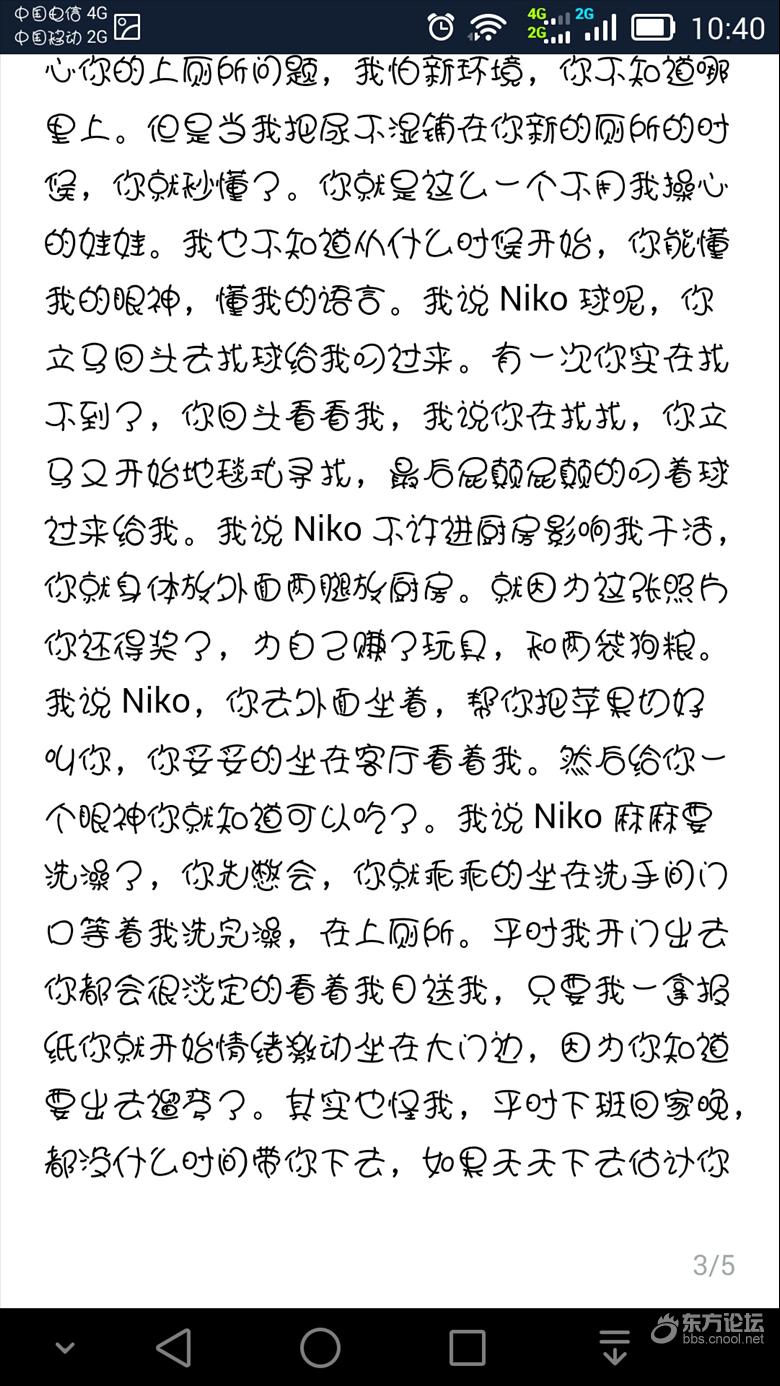 中国电信 4G
中国移动 2G
4G 2G
2G
10:40
心你的上厕所问题，我怕新环境，你不知道哪
里上。但是当我把尿不湿铺在你新的厕所的时
候，你就秒懂了。你就是这么一个不用我操心
的娃娃。我也不知道从什么时候开始，你能懂
我的眼神，懂我的语言。我说 Niko 球呢，你
立马回头去找球给我叼过来。有一次你实在找
不到了，你回头看看我，我说你在找找，你立
马又开始地毯式寻找，最后屁颠屁颠的叼着球
过来给我。我说 Niko 不许进厨房影响我干活，
你就身体放外面两腿放厨房。就因为这张照片
你还得奖了，为自己赚了玩具，和两袋狗粮。
我说 Niko，你去外面坐着，帮你把苹果切好
叫你，你妥妥的坐在客厅看着我。然后给你一
个眼神你就知道可以吃了。我说 Niko 麻麻要
洗澡了，你先憋会，你就乖乖的坐在洗手间门
口等着我洗完澡，在上厕所。平时我开门出去
你都会很淡定的看着我目送我，只要我一拿报
纸你就开始情绪激动坐在大门边，因为你知道
要出去遛弯了。其实也怪我，平时下班回家晚，
都没什么时间带你下去，如果天天下去估计你
3/5
东方论坛
bbs.cnool.net